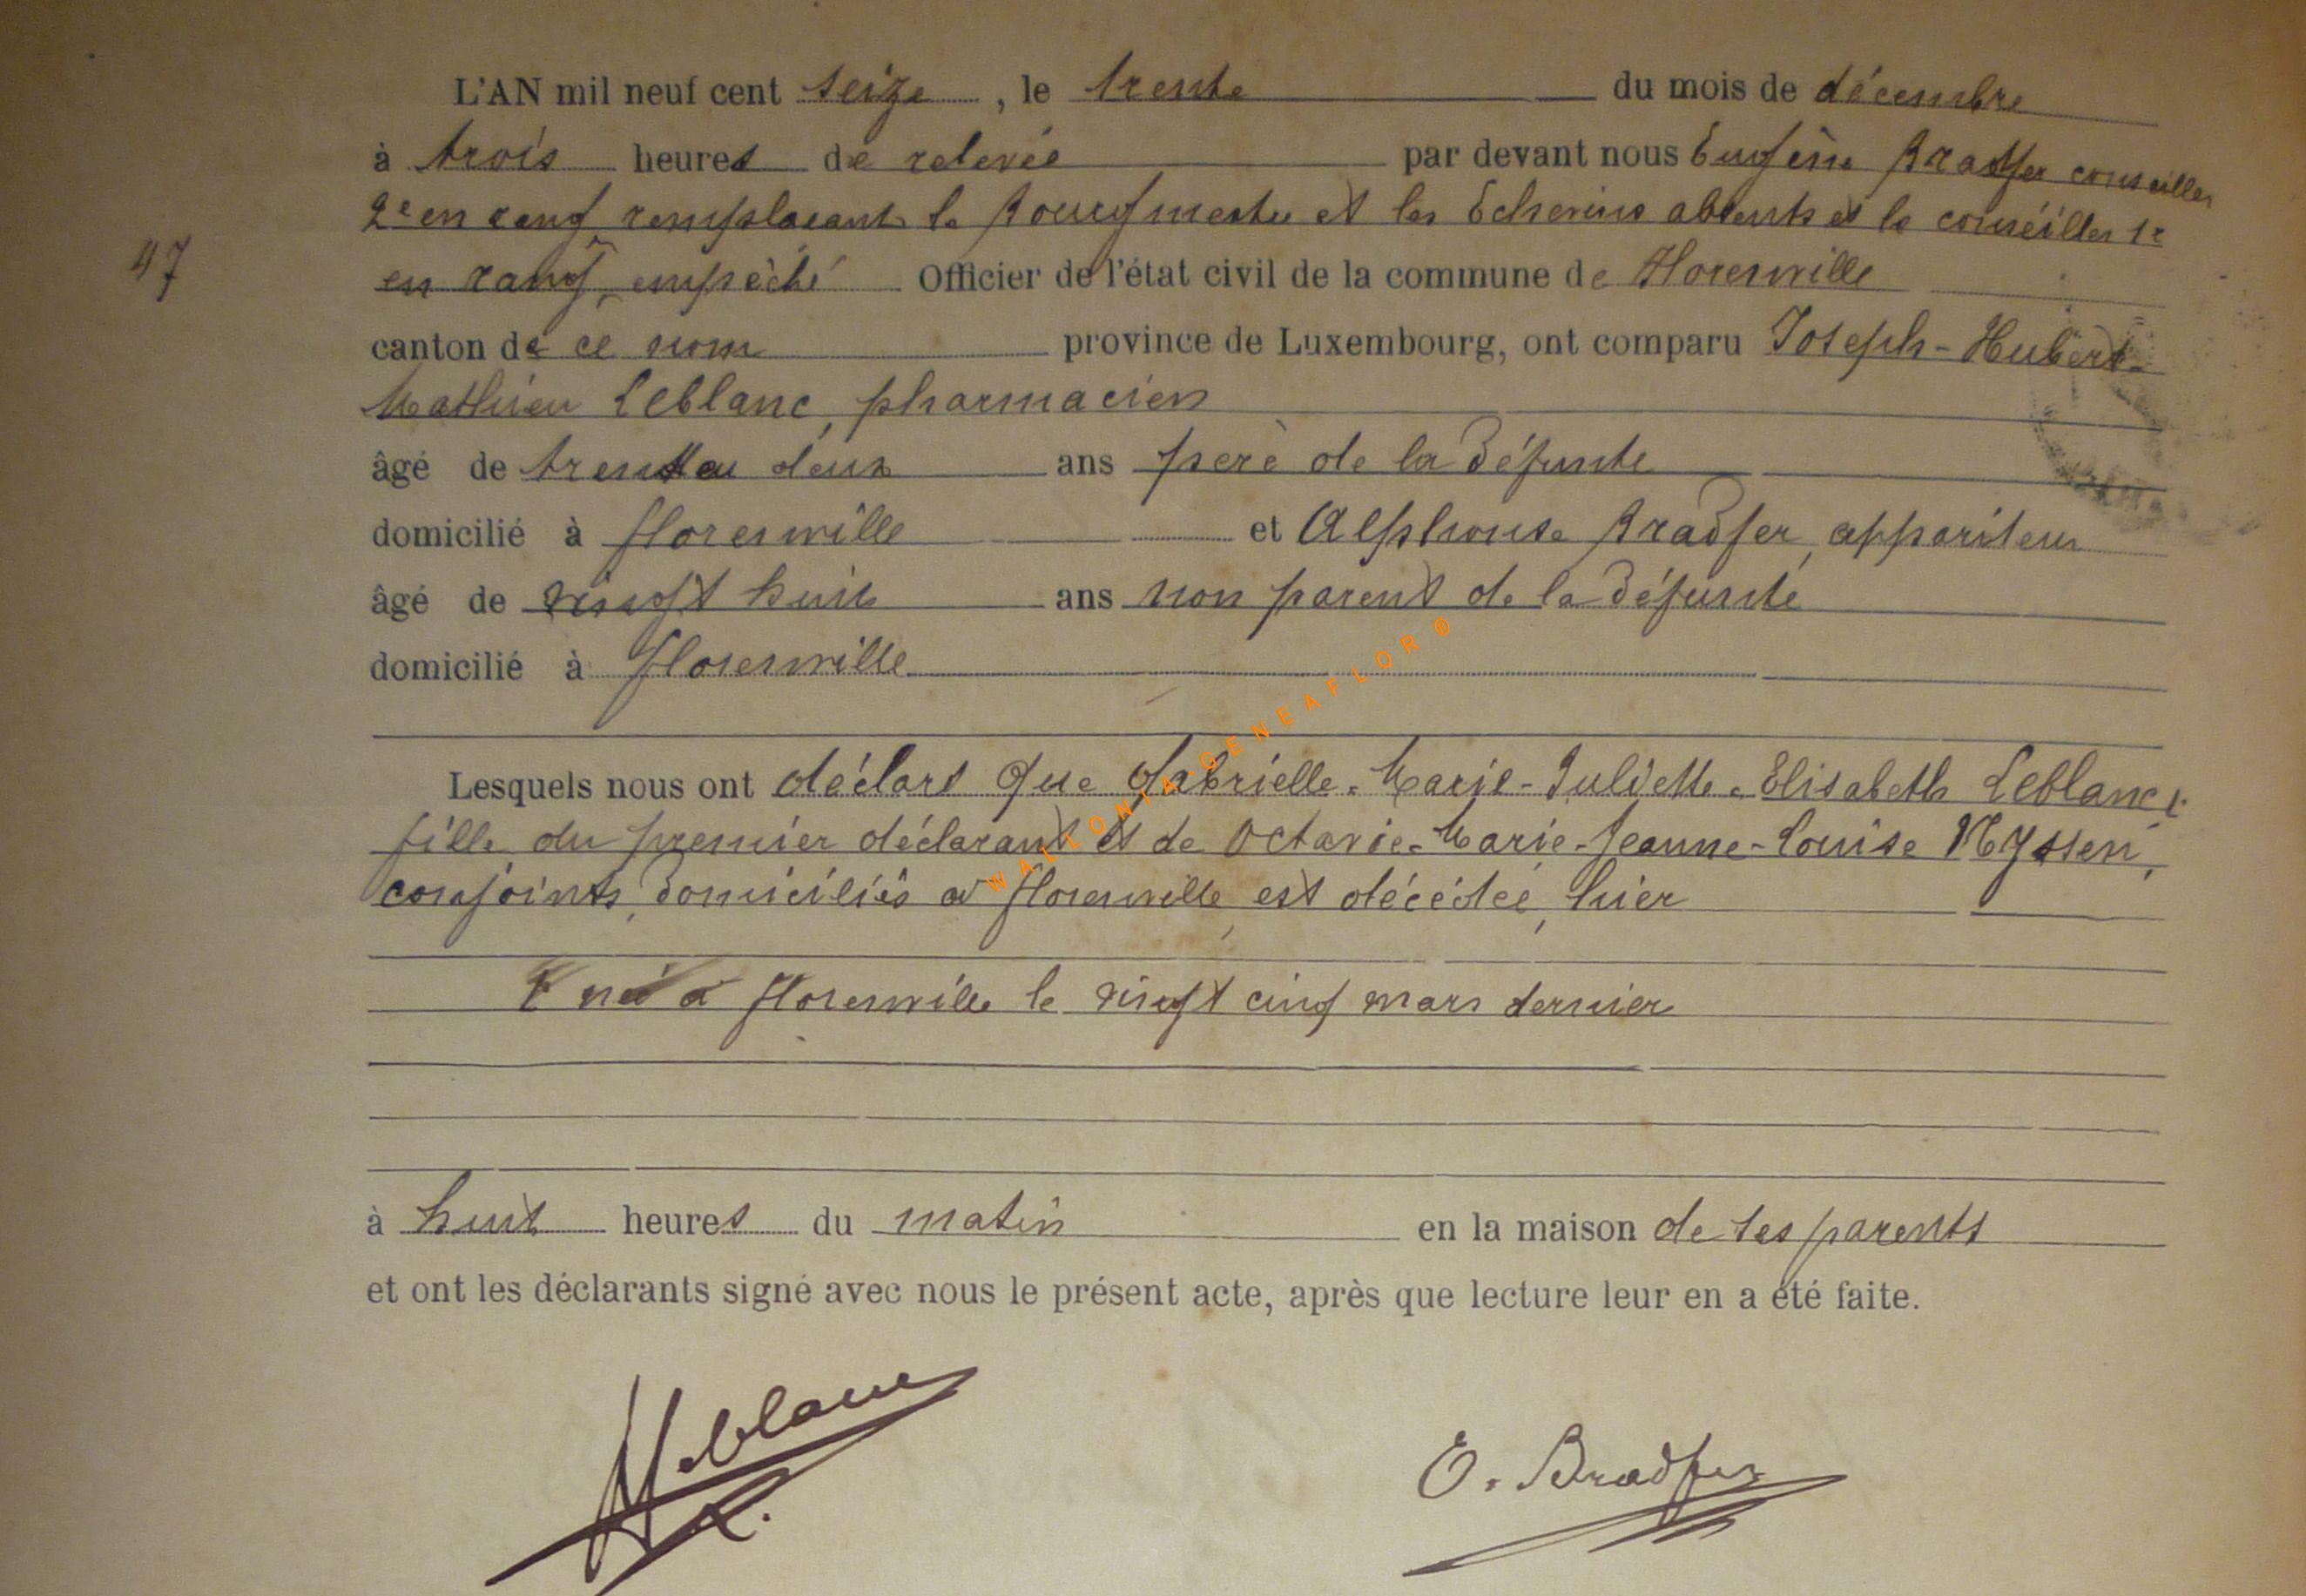 L'AN mil neuf cent seize, le trente du mois de décembre
à trois heures de relevée par devant nous Eugène Bradfer conseiller
2e en rang remplaçant le Bourgmestre et les Echevins absents et le conseiller 1r
47
en rang, empêché Officier de l'état civil de la commune de Florenville
canton de ce nom province de Luxembourg, ont comparu Joseph-Hubert-
Mathieu Leblanc, pharmacien
âgé de trente deux ans père de la défunte
domicilié à Florenville et Alphonse Bradfer, appariteur
âgé de vingt huit ans non parent de la défunte
domicilié à Florenville
Lesquels nous ont déclaré que Gabrielle-Marie-Juliette-Elisabeth Leblanc,
fille du premier déclarant et de Octavie-Marie-Jeanne-Louise Nyssen,
conjoints, domiciliés à Florenville, est décédée, hier
née à Florenville le vingt cinq mars dernier
à huit heures du matin en la maison de ses parents
et ont les déclarants signé avec nous le présent acte, après que lecture leur en a été faite.
Leblanc
E. Bradfer
WALLONIA-GENEAFLOR ©